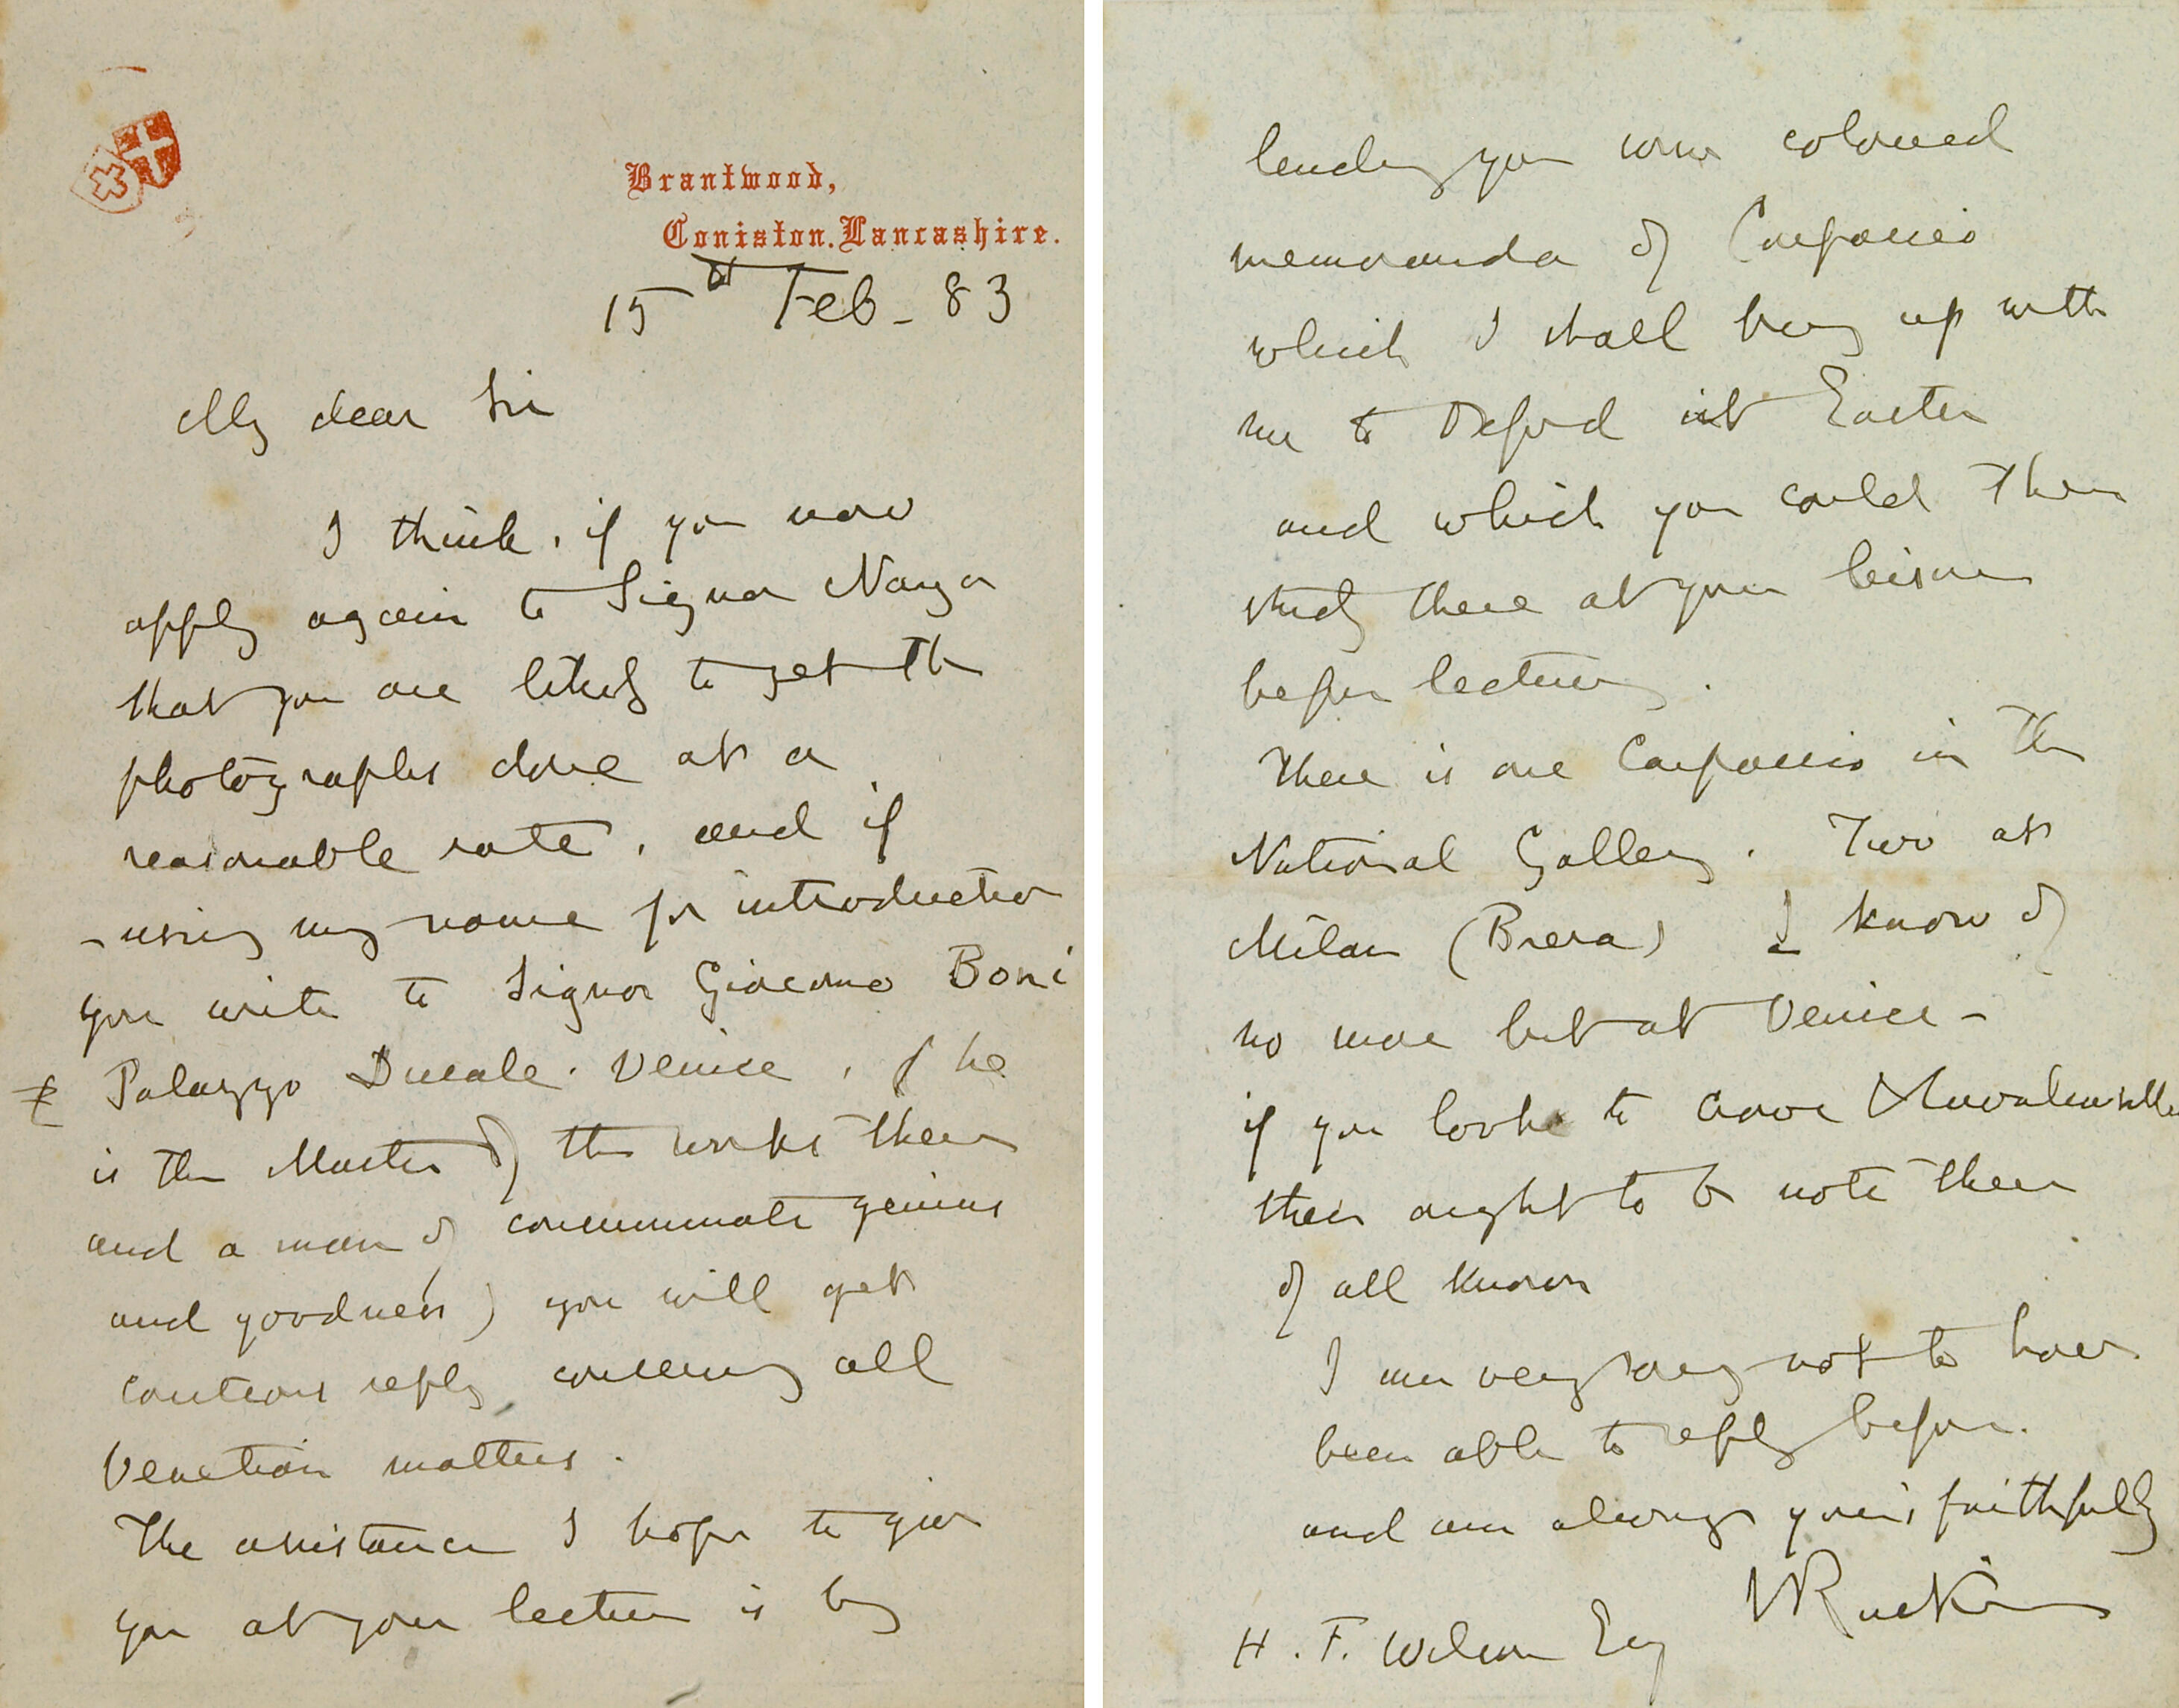 Brantwood,
Coniston. Lancashire.
15th Feb - 83
My dear Sir
I think, if you now
apply again to Signor Naya
that you are likely to get the
photographs done at a
reasonable rate, and if
-using my name for introduction
you write to Signor Giacomo Boni
Palazzo Ducale. Venice, (he
is the Master of the works there
and a man of consummate genius
and goodness) you will get
courteous reply concerning all
Venetian matters.
The assistance I hope to give
you at your lecture is by
lending you some coloured
memoranda of Carpaccio
which I shall bring up with
me to Oxford at Easter
and which you could then
study there at your leisure
before lecturing.
There is one Carpaccio in the
National Gallery. Two at
Milan (Brera) I know of
no more but at Venice -
if you looke to Crowe &
there ought to be note there
of all known
I am very sorry not to have
been able to reply before.
and am always yours faithfully
J Ruskin
H. F. Wilson Esq